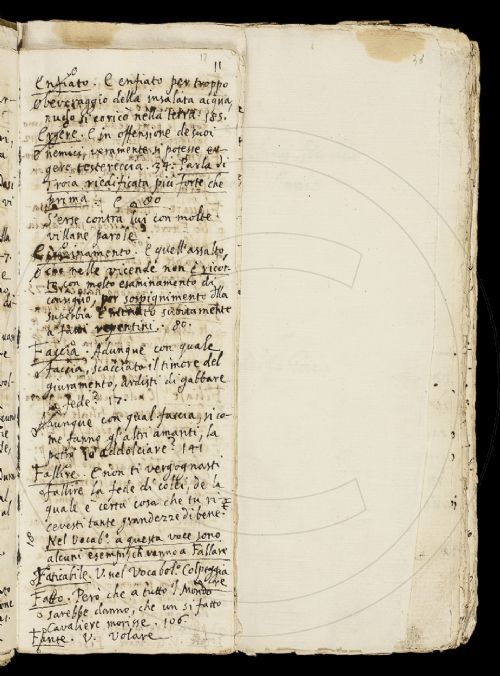 17
11
38
Enfiato. E enfiato per troppo
beveraggio della insalata acqua
si coricò nella terra. 185.
Ergere. E in offensione de suoi
nemici, veramente si potesse er-
gere testereccia. 34. Parla di
Troia riedificata più forte che
prima. E 80
S'erse contra lui con molte
villane parole
E quell'assalto,
che nelle vicende non è ricor-
con molto esaminamento di
consiglio, per sospignimento della
superbia subitamente
repentini. 80.
Faccia. Adunque con quale
faccia, scacciato il timore del
giuramento, ardisti di gabbare
fede? 17.
Adunque con qual faccia, sì co-
me fanno gl'altri amanti, la
addolciare? 141
Fallire. E non ti vergognasti
fallire la fede di colei, de la
quale è certa cosa che tu ri-
cevesti tante grandezze di bene?
Nel Vocab.º a questa voce sono
alcuni esempli ch vanno a Fallare
Faticabile. V. nel Vocabol.º
Fatto. Però che a tutto 'l mondo
sarebbe danno, che un sì fatto
Cavaliere morisse. 106.
Fante. V. Volare